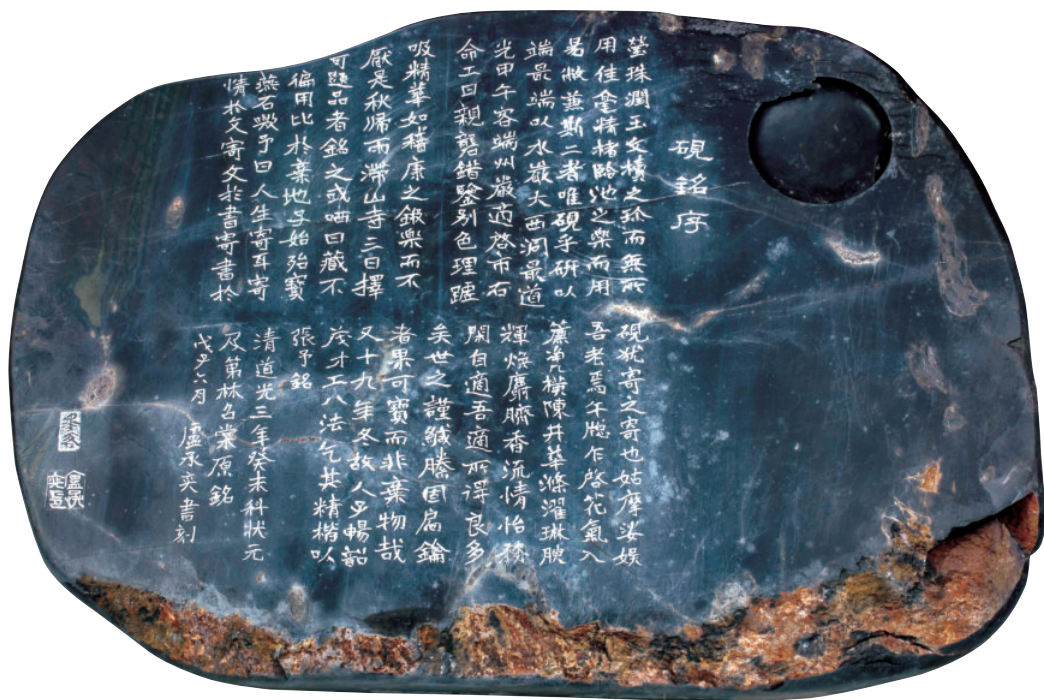 硯銘序
瑩珠潤玉文積之玩而無所
用佳毫精楮臨池之樂而用
易敝兼斯二者唯硯乎硏以
端最端以水巖大西洞最道
光甲午客端州巖適啓市石
命工曰親礱錯鑒别色理蹠
吸精華如稽康之鍛樂而不
厭是秋歸雨滯山寺三日擇
可題品者銘之或哂曰藏不
徧用比於棄地子始殆寶
燕石歟予曰人生寄耳寄
情於文寄文於書寄書於
硯犹寄之寄也姑摩娑娱
吾老焉午牕乍啓花氣入
簾凈几横陳井華滌濯琳腴
輝焕麝臍香流情怡
閑自適吾適所得良多
矣世之謹緘縢固扃鑰
者果可寶而非棄物哉
又十九年冬故人吴暢韶
茂才工八法乞其精楷以
張予銘
清道光三年癸未科状元
及第林召棠原銘
戊夕六月
盧承奕書刻